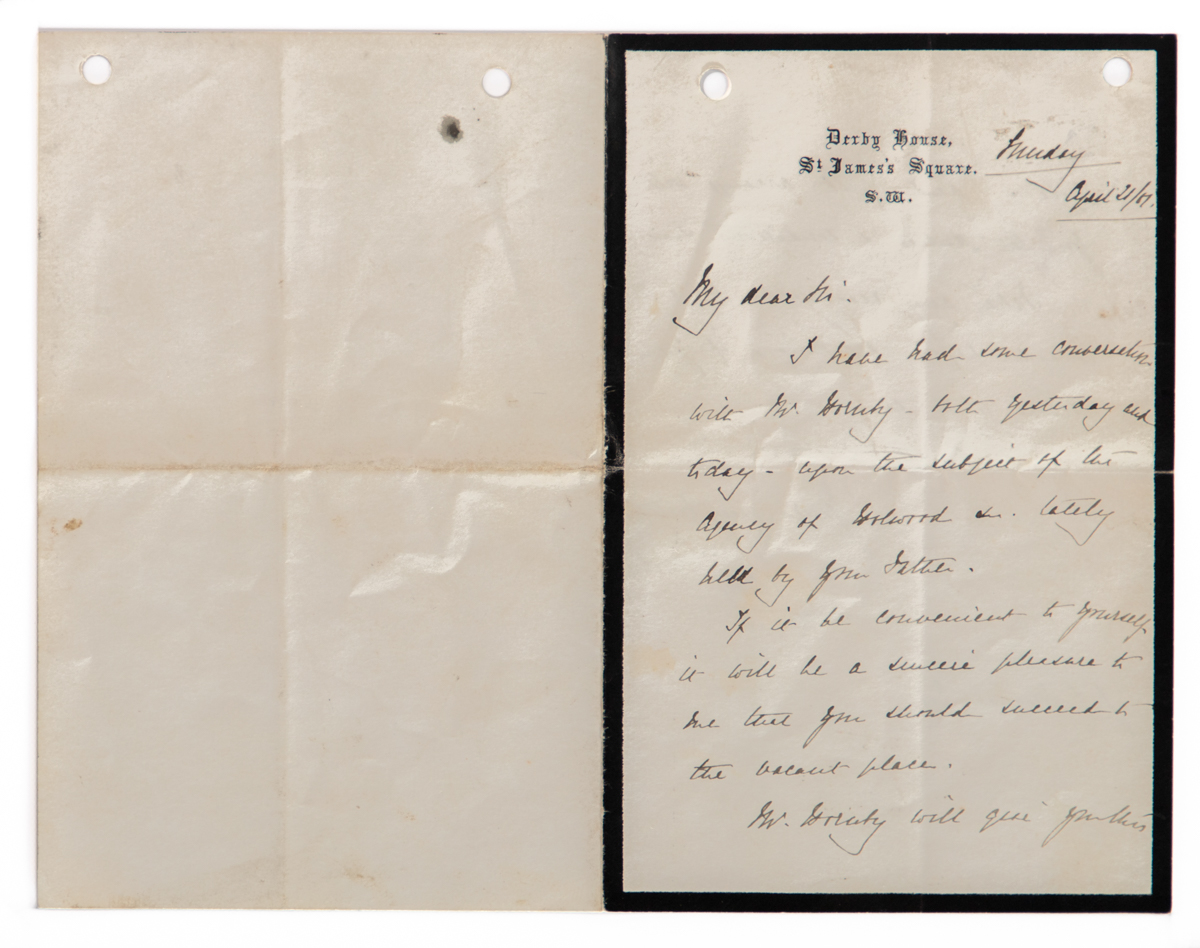 Derby House,
St James's Square.
S.W.
Sunday
April 21/01.
My dear Sir.
I have had some conversation
with Mr. Hornby - both yesterday and
today - upon the subject of the
Agency of Holwood &c. lately
held by your Father.
If it be convenient to yourself
it will be a sincere pleasure to
me that you should succeed to
the vacant place.
Mr. Hornby will give you this